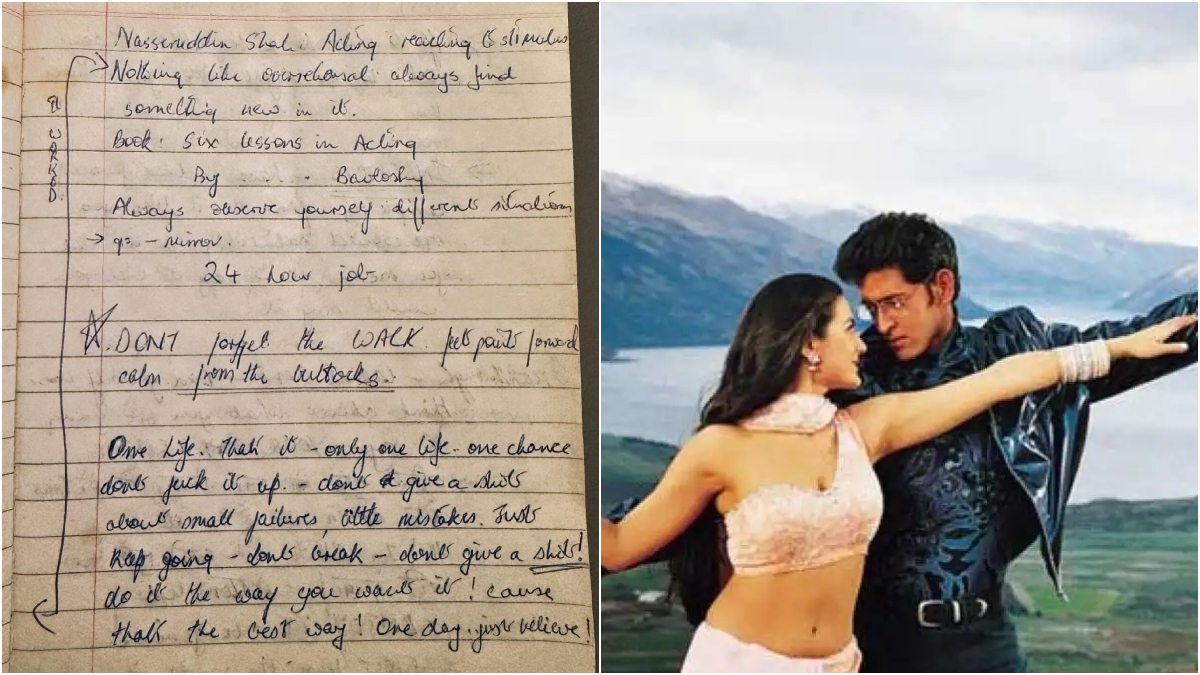 Nasseruddin Shah : Acting : reacting to stimulus
Nothing like overrehersal always find
something new in it.
Book: Six lessons in Acting
By . . - Bavtosky
Always observe yourself different situations
→ eg: - mirror.
24 hour jobs
IT WORKED.
DONT forget the WALK. feet point forward
calm from the buttocks.
One Life. that it - only one life. one chance
dont fuck it up. - dont give a shit
about small failures, little mistakes. Just
keep going - dont break - dont give a shit!
do it the way you want it! cause
that the best way! One day. just believe!